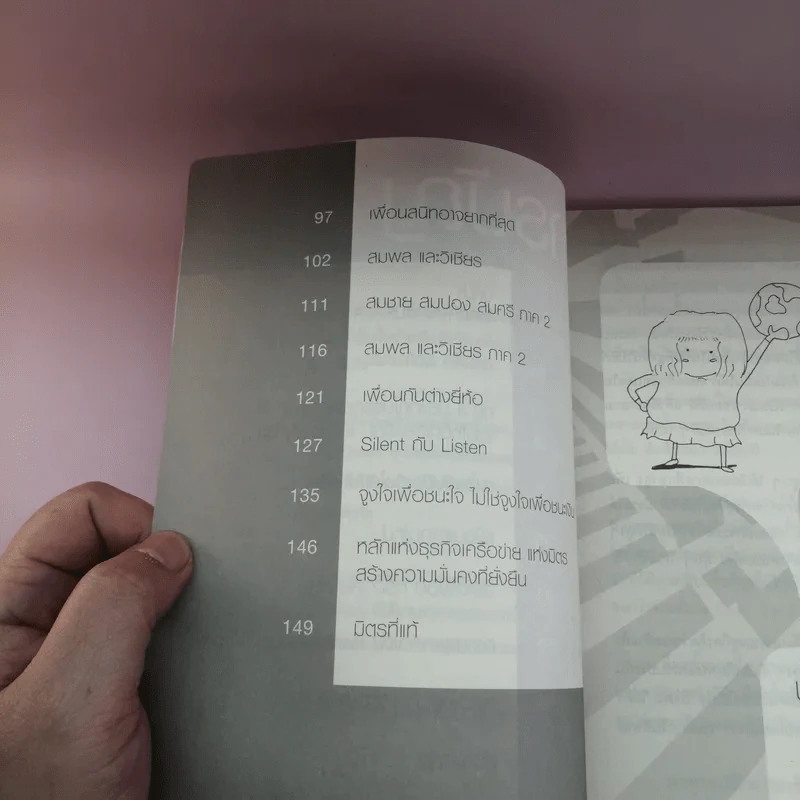 97 เพื่อนสนิทอาจยากที่สุด
102 สมพล และวิเชียร
111 สมชาย สมปอง สมศรี ภาค 2
116 สมพล และวิเชียร ภาค 2
121 เพื่อนกันต่างยี่ห้อ
127 Silent กับ Listen
135 จูงใจเพื่อชนะใจ ไม่ใช่จูงใจเพื่อชนะเงิน
146 หลักแห่งธุรกิจเครือข่าย แห่งมิตร
สร้างความมั่นคงที่ยั่งยืน
149 มิตรที่แท้